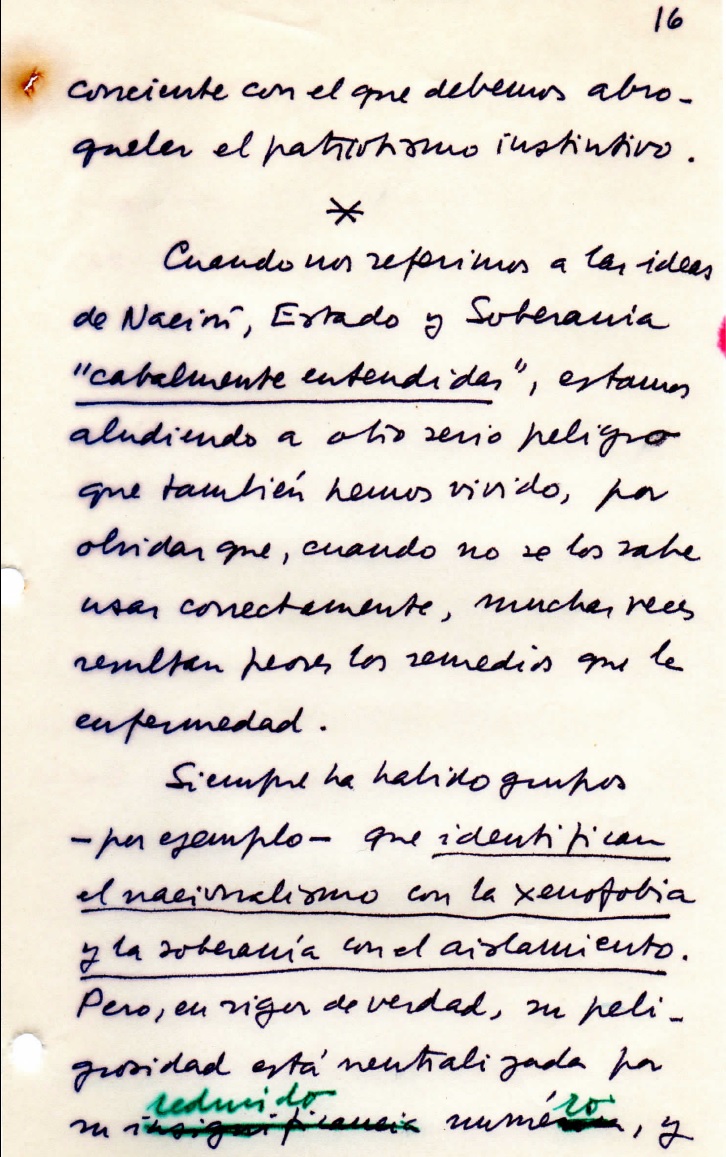 16
conciente con el que debemos abro-
quelar el patriotismo instintivo.
*
Cuando nos referimos a las ideas
de Nación, Estado y Soberanía
"cabalmente entendidas", estamos
aludiendo a otro serio peligro
que también hemos vivido, por
olvidar que, cuando no se los sabe
usar correctamente, muchas veces
resultan peores los remedios que la
enfermedad.
Siempre ha habido grupos
-por ejemplo- que identifican
el nacionalismo con la xenofobia
y la soberanía con el aislamiento.
Pero, en rigor de verdad, su peli-
grosidad está neutralizada por
reducido ro
su insignificancia numérica, y